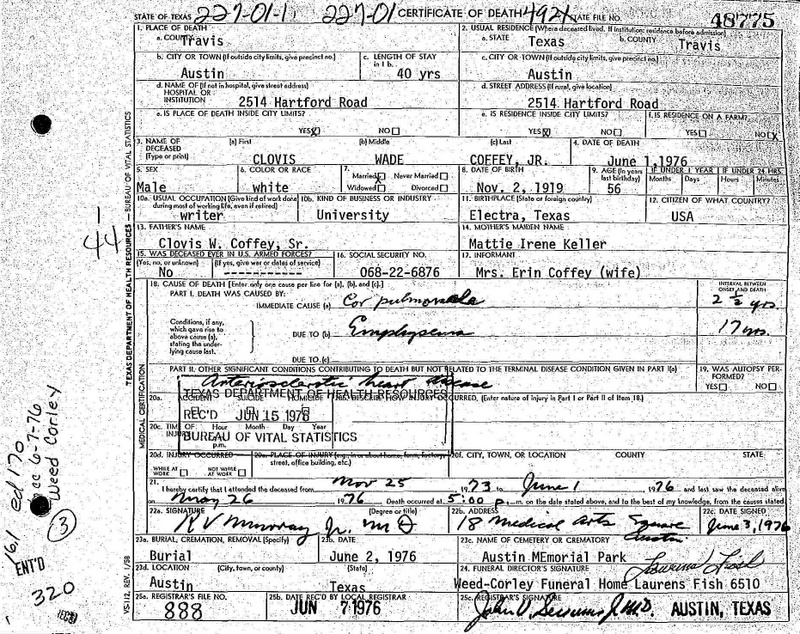 STATE OF TEXAS 227-01-1 227-01 CERTIFICATE OF DEATH 4921 STATE FILE NO. 48775
1. PLACE OF DEATH
a. COUNTY Travis
2. USUAL RESIDENCE (Where deceased lived. If institution: residence before admission)
a. STATE Texas b. COUNTY Travis
b. CITY OR TOWN (If outside city limits, give precinct no.) Austin
c. LENGTH OF STAY in 1 b. 40 yrs
c. CITY OR TOWN (If outside city limits, give precinct no.) Austin
d. NAME OF (If not in hospital, give street address) HOSPITAL OR INSTITUTION 2514 Hartford Road
d. STREET ADDRESS (If rural, give location) 2514 Hartford Road
e. IS PLACE OF DEATH INSIDE CITY LIMITS? YES X NO
e. IS RESIDENCE INSIDE CITY LIMITS? YES X NO
f. IS RESIDENCE ON A FARM? YES NO X
3. NAME OF DECEASED (Type or print)
(a) First CLOVIS (b) Middle WADE (c) Last COFFEY, JR.
4. DATE OF DEATH June 1, 1976
5. SEX Male
6. COLOR OR RACE white
7. Married Never Married Widowed Divorced
8. DATE OF BIRTH Nov. 2, 1919
9. AGE (In years last birthday) 56
IF UNDER 1 YEAR Months Days
IF UNDER 24 HRS. Hours Minutes
10a. USUAL OCCUPATION (Give kind of work done during most of working life, even if retired) writer
10b. KIND OF BUSINESS OR INDUSTRY University
11. BIRTHPLACE (State or foreign country) Electra, Texas
12. CITIZEN OF WHAT COUNTRY? USA
13. FATHER'S NAME Clovis W. Coffey, Sr.
14. MOTHER'S MAIDEN NAME Mattie Irene Keller
15. WAS DECEASED EVER IN U.S. ARMED FORCES? (Yes, no, or unknown) No (If yes, give war or dates of service) -----------
16. SOCIAL SECURITY NO. 068-22-6876
17. INFORMANT Mrs. Erin Coffey (wife)
18. CAUSE OF DEATH [Enter only one cause per line for (a), (b), and (c).]
INTERVAL BETWEEN ONSET AND DEATH
PART I. DEATH WAS CAUSED BY:
IMMEDIATE CAUSE (a) Cor pulmonale 2 ½ yrs.
Conditions, if any, which gave rise to above cause (a), stating the underlying cause last.
DUE TO (b) Emphysema 17 yrs.
DUE TO (c)
PART II. OTHER SIGNIFICANT CONDITIONS CONTRIBUTING TO DEATH BUT NOT RELATED TO THE TERMINAL DISEASE CONDITION GIVEN IN PART I(a)
Arteriosclerotic heart disease
19. WAS AUTOPSY PERFORMED? YES NO
20a. ACCIDENT SUICIDE HOMICIDE
DESCRIBE HOW INJURY OCCURRED. (Enter nature of injury in Part I or Part II of Item 18.)
TEXAS DEPARTMENT OF HEALTH RESOURCES
REC'D JUN 15 1976
BUREAU OF VITAL STATISTICS
20c. TIME OF INJURY Hour Month Day Year p.m.
20d. INJURY OCCURRED WHILE AT WORK NOT WHILE AT WORK
20e. PLACE OF INJURY (e.g., in or about home, farm, factory, street, office building, etc.)
20f. CITY, TOWN, OR LOCATION COUNTY STATE
21. I hereby certify that I attended the deceased from Nov 25 1973 to June 1 1976 and last saw the deceased alive
on May 26 1976 Death occurred at 5:00 p.m. on the date stated above, and to the best of my knowledge, from the causes stated
22a. SIGNATURE (Degree or title) RV Murray Jr. MD
22b. ADDRESS 18 Medical Arts Square Austin
22c. DATE SIGNED June 3, 1976
23a. BURIAL, CREMATION, REMOVAL (Specify) Burial
23b. DATE June 2, 1976
23c. NAME OF CEMETERY OR CREMATORY Austin MEmorial Park
23d. LOCATION (City, town, or county) (State) Austin Texas
24. FUNERAL DIRECTOR'S SIGNATURE Laurens Fish
Weed-Corley Funeral Home Laurens Fish 6510
25a. REGISTRAR'S FILE NO. 888
25b. DATE REC'D BY LOCAL REGISTRAR JUN 7 1976
25c. REGISTRAR'S SIGNATURE AUSTIN, TEXAS
TEXAS DEPARTMENT OF HEALTH RESOURCES — BUREAU OF VITAL STATISTICS
MEDICAL CERTIFICATION
VS-112, REV. 1/58
1
44
6-7-76
Weed Corley
3
ENT'D
320